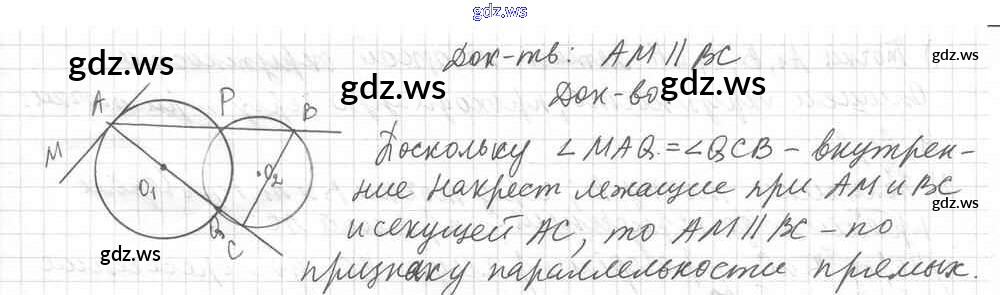 gdz.ws
Док-ть: AM || BC
gdz.ws
gdz.ws
gdz.ws
gdz.ws
Док-во
A
P
B
gdz.ws
Поскольку ∠MAQ = ∠QCB – внутрен-
M
O₁
O₂
ние накрест лежащие при AM и BC
gdz.ws
Q
C
и секущей AC, то AM || BC – по
gdz.ws
признаку параллельности прямых.